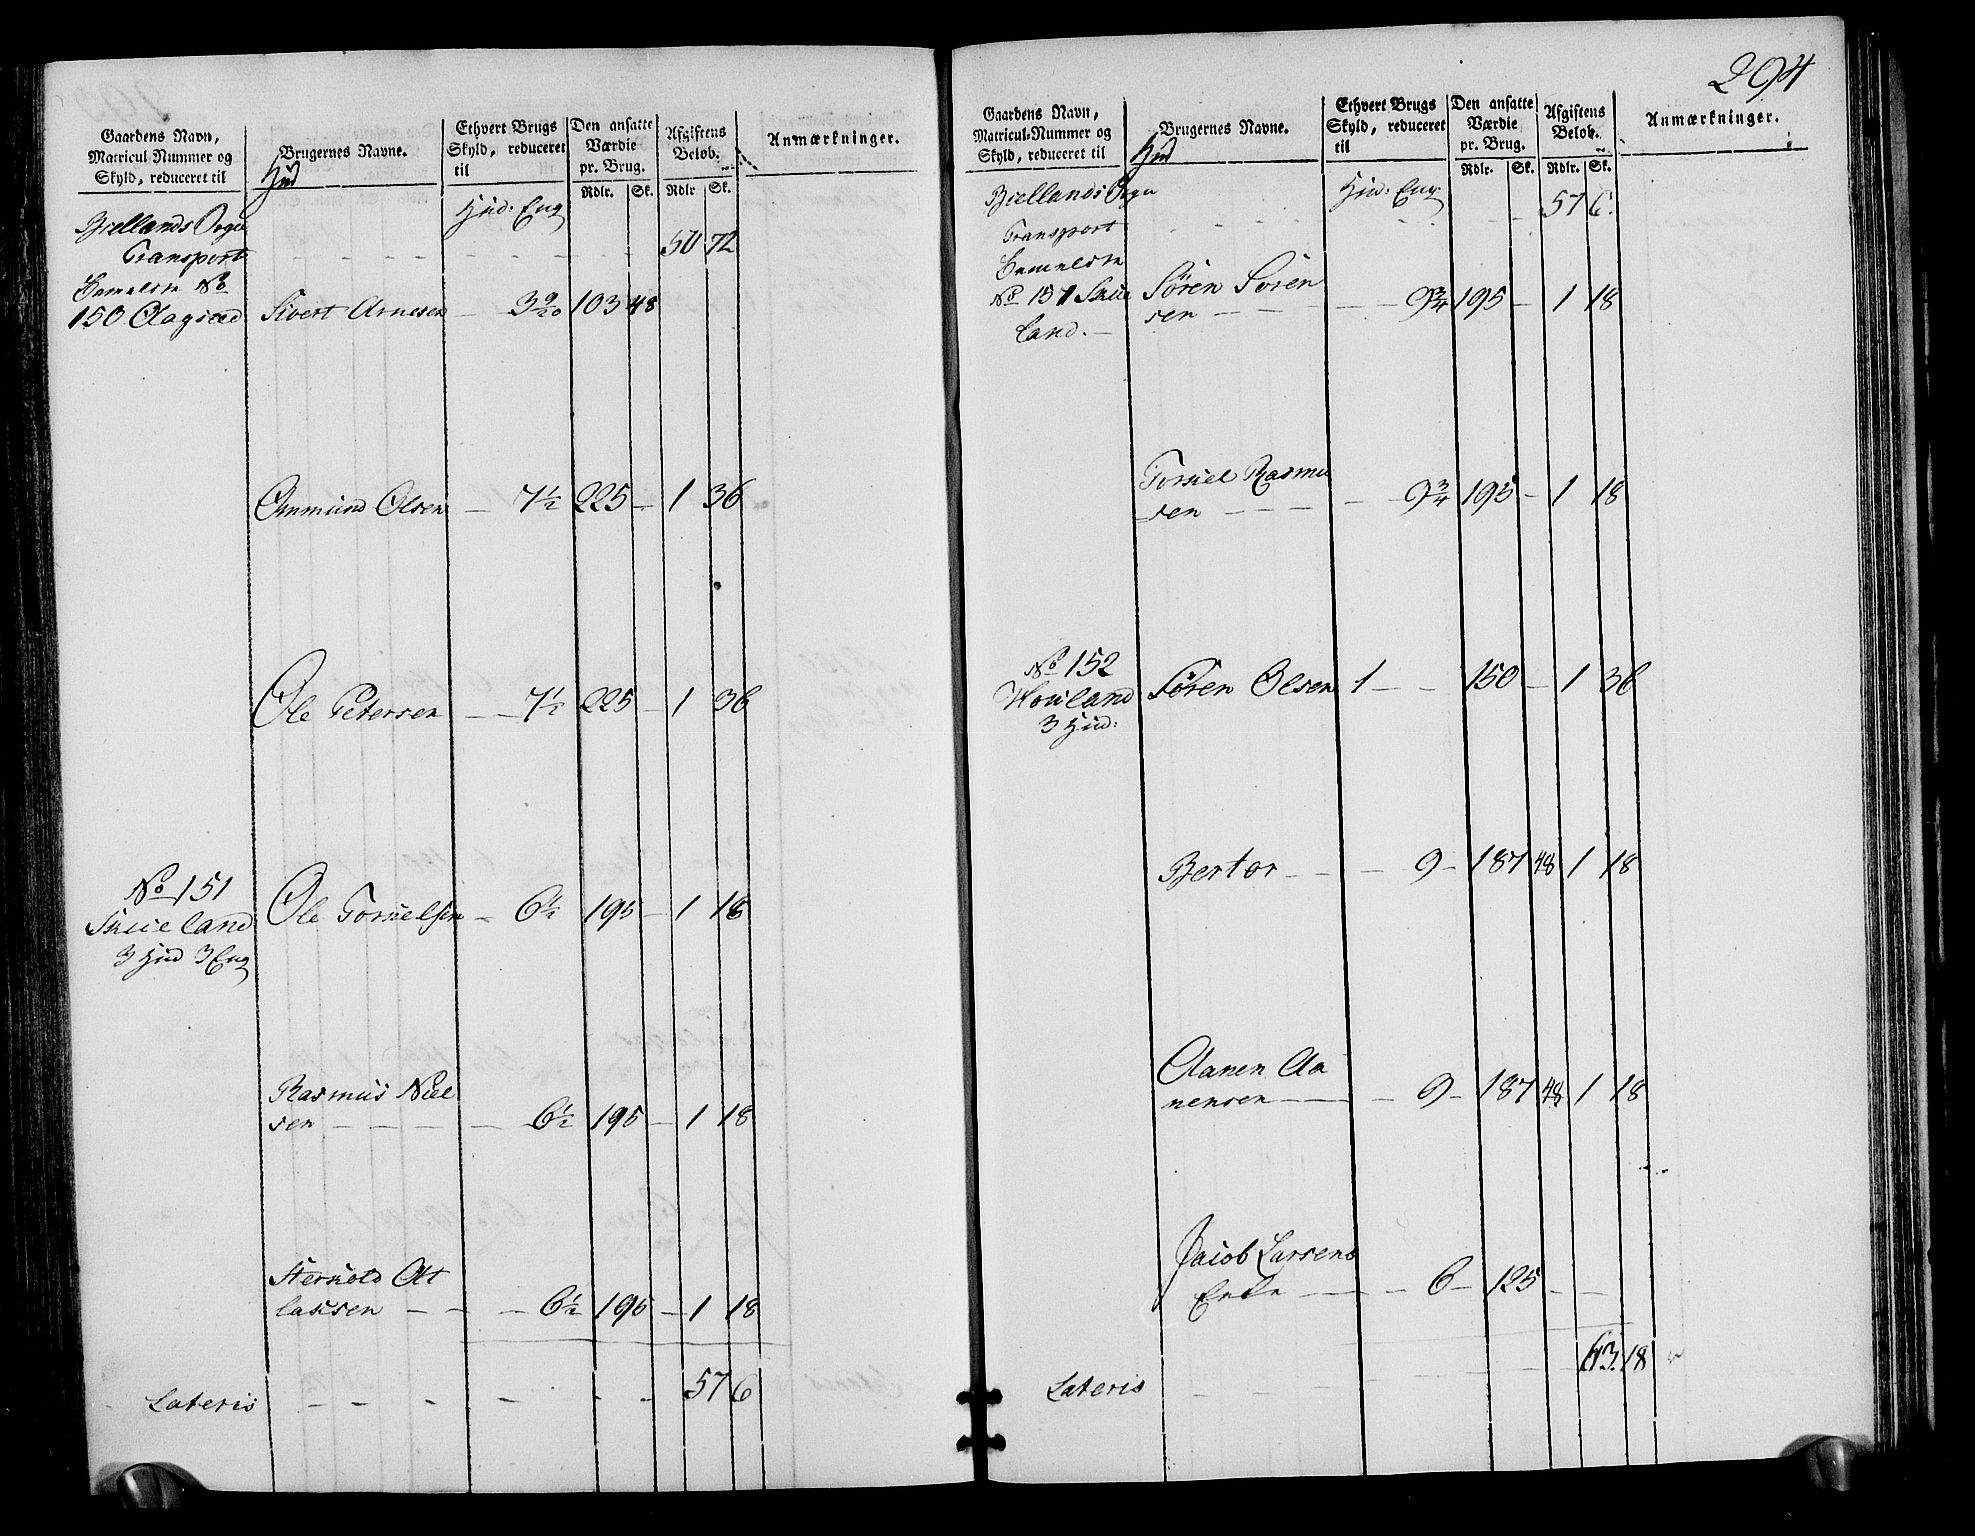 294
Gaardens Navn,
Matricul-Nummer og
Skyld, reduceret til
Hud
Brugernes Navne.
Ethvert Brugs
Skyld, reduceret
til
Den ansatte
Værdie
pr. Brug.
Rdlr. Sk.
Afgiftens
Beløb.
Rdlr Sk.
Anmærkninger.
Hud: Eng
Biellands Sogn
Transport 50 72
Gamelste No
150 Aagsæd Sivert Arnesen 3 9/20 103 48
Anmund Olsen 7½ 225 1 36
Ole Petersen 7½ 225 1 36
No 151
Skueland Ole Torkelsen 6½ 195 1 18
3 Hud 3 Eng
Rasmus Niel
sen 6½ 195 1 18
Sterkold At
lassen 6½ 195 1 18
Lateris 57 6
Gaardens Navn,
Matricul-Nummer og
Skyld, reduceret til
Hud
Brugernes Navne.
Ethvert Brugs
Skyld, reduceret
til
Den ansatte
Værdie
pr. Brug.
Rdlr. Sk.
Afgiftens
Beløb.
Rdlr. Sk.
Anmærkninger.
Hud: Eng.
Biellands Sogn 57 6.
Transport
Gamelste
No 151 Skue Sören Sören
land. sen 9¾ 195 1 18
Torkel Rasmu
sen 9¾ 195 1 18
No 152
Houland Sören Olsen 1 150 1 36
3 Hud:
Bertor 9 187 48 1 18
Aanen Aa
nensen 9 187 48 1 18
Jacob Larsens
Enke 6 125
63. 18
Lateris